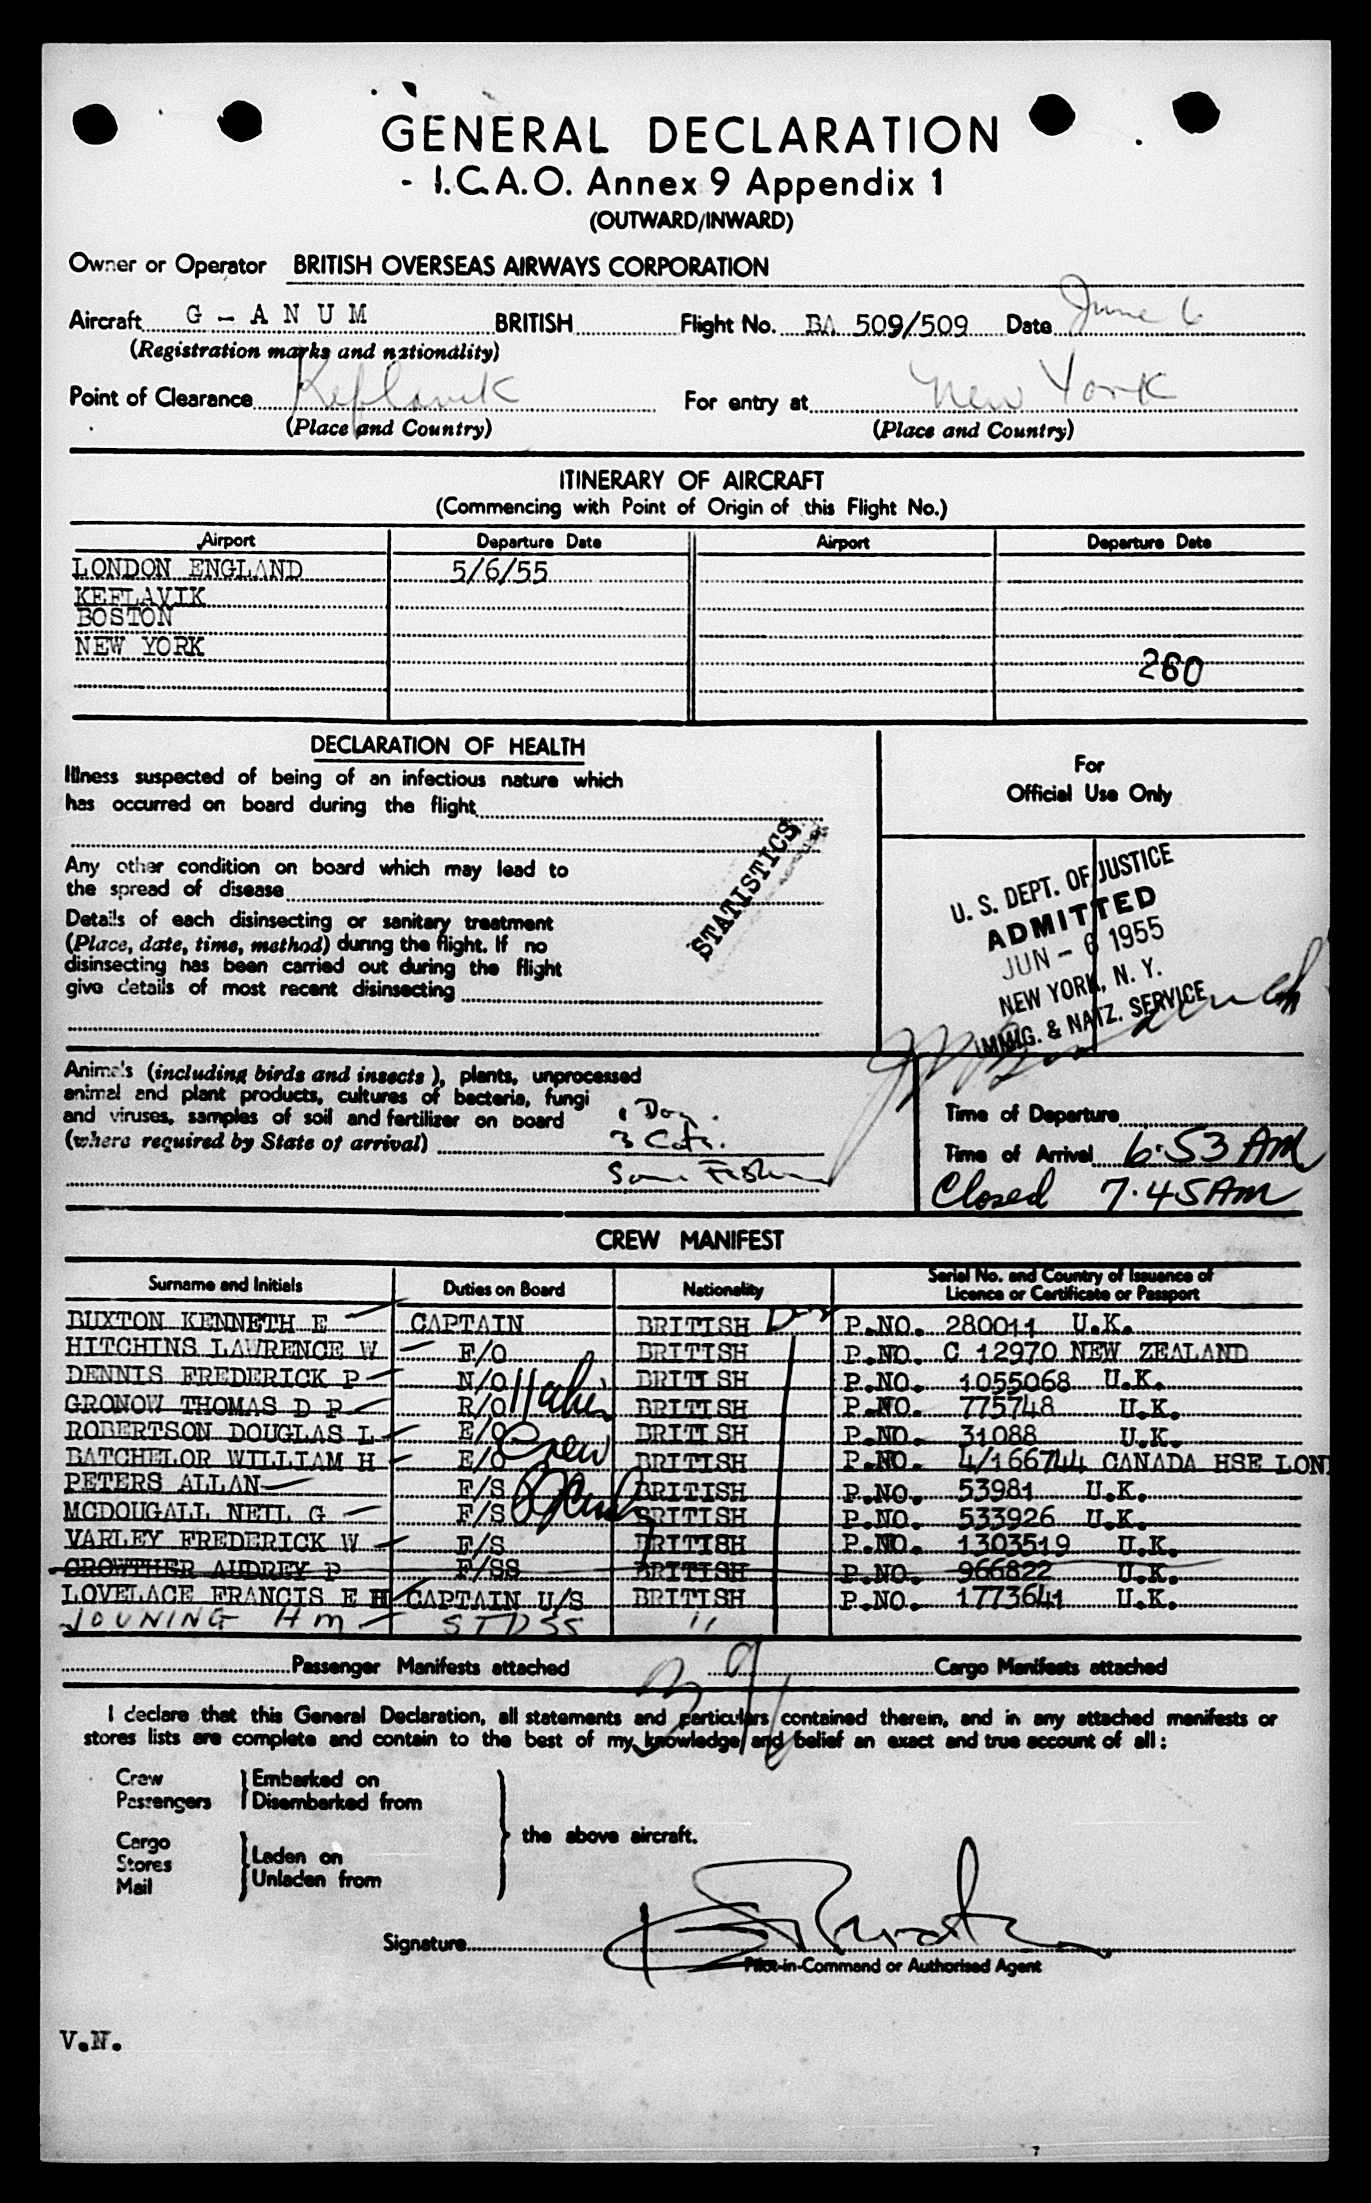 GENERAL DECLARATION
- I.C.A.O. Annex 9 Appendix 1
(OUTWARD/INWARD)
Owner or Operator BRITISH OVERSEAS AIRWAYS CORPORATION
Aircraft G - A N U M BRITISH Flight No. BA 509/509 Date June 6
(Registration marks and nationality)
Point of Clearance Keflavik For entry at New York
(Place and Country) (Place and Country)
ITINERARY OF AIRCRAFT
(Commencing with Point of Origin of this Flight No.)
Airport Departure Date Airport Departure Date
LONDON ENGLAND 5/6/55
KEFLAVIK
BOSTON
NEW YORK
260
DECLARATION OF HEALTH
Illness suspected of being of an infectious nature which
has occurred on board during the flight
For
Official Use Only
Any other condition on board which may lead to
the spread of disease
STATISTICS
Details of each disinsecting or sanitary treatment
(Place, date, time, method) during the flight. If no
disinsecting has been carried out during the flight
give details of most recent disinsecting
U. S. DEPT. OF JUSTICE
ADMITTED
JUN - 6 1955
NEW YORK, N. Y.
IMMIG. & NATZ. SERVICE
Animals (including birds and insects), plants, unprocessed
animal and plant products, cultures of bacteria, fungi
and viruses, samples of soil and fertilizer on board 1 Dog.
(where required by State of arrival) 3 Cats.
Some
Time of Departure
Time of Arrival 6:53 AM
Closed 7.45 AM
CREW MANIFEST
Surname and Initials Duties on Board Nationality Serial No. and Country of Issuance of
Licence or Certificate or Passport
BUXTON KENNETH E CAPTAIN BRITISH P.NO. 280011 U.K.
HITCHINS LAWRENCE W F/O BRITISH P.NO. C 12970 NEW ZEALAND
DENNIS FREDERICK P N/O BRITISH P.NO. 1055068 U.K.
GRONOW THOMAS D P R/O BRITISH P.NO. 775748 U.K.
ROBERTSON DOUGLAS L E/O BRITISH P.NO. 31088 U.K.
BATCHELOR WILLIAM H E/O Crew BRITISH P.NO. 4/166744 CANADA HSE LON
PETERS ALLAN F/S BRITISH P.NO. 53981 U.K.
MCDOUGALL NEIL G F/S BRITISH P.NO. 533926 U.K.
VARLEY FREDERICK W F/S BRITISH P.NO. 1303519 U.K.
CROWTHER AUDREY P F/SS BRITISH P.NO. 966822 U.K.
LOVELACE FRANCIS E H CAPTAIN U/S BRITISH P.NO. 1773641 U.K.
JOUNING HM STDSS "
Passenger Manifests attached Cargo Manifests attached
I declare that this General Declaration, all statements and particulars contained therein, and in any attached manifests or
stores lists are complete and contain to the best of my knowledge and belief an exact and true account of all:
Crew Embarked on
Passengers Disembarked from
the above aircraft.
Cargo
Stores Laden on
Mail Unladen from
Signature
Pilot-in-Command or Authorised Agent
V.N.
7